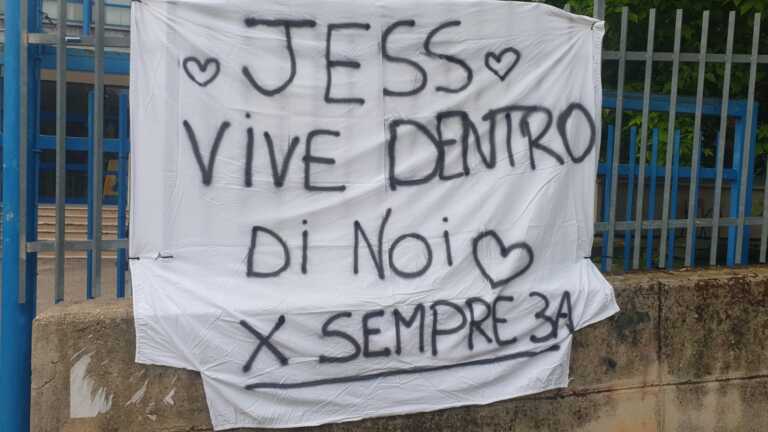 JESS
ViVE DENTRO
Di Noi
X SEMPRE 3A